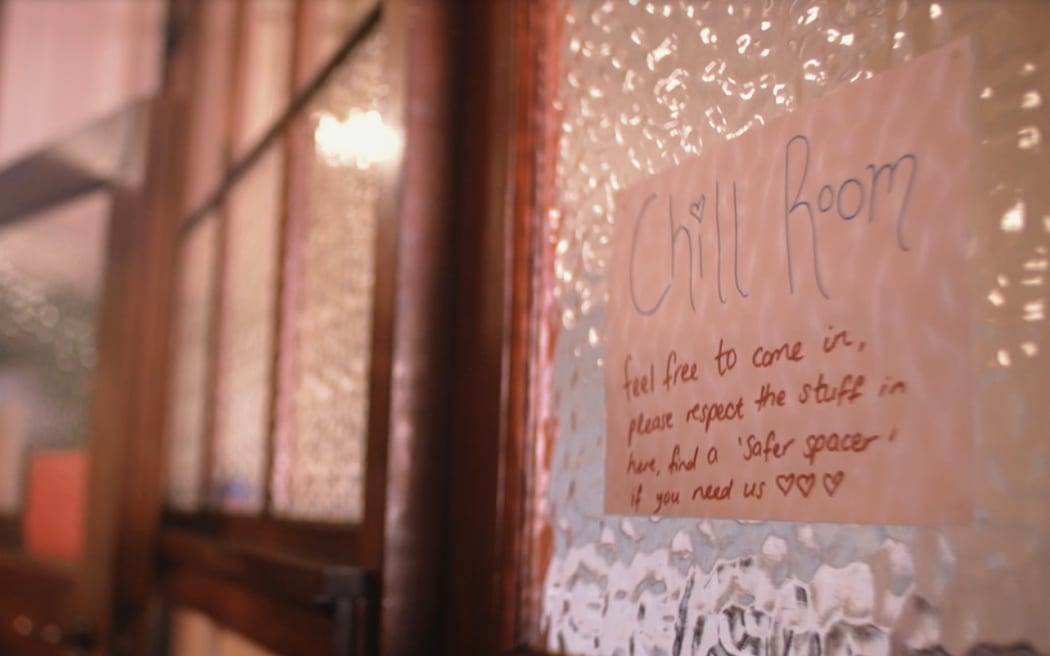 Chill Room
feel free to come in,
please respect the stuff in
here, find a 'safer spacer'
if you need us ♡♡♡